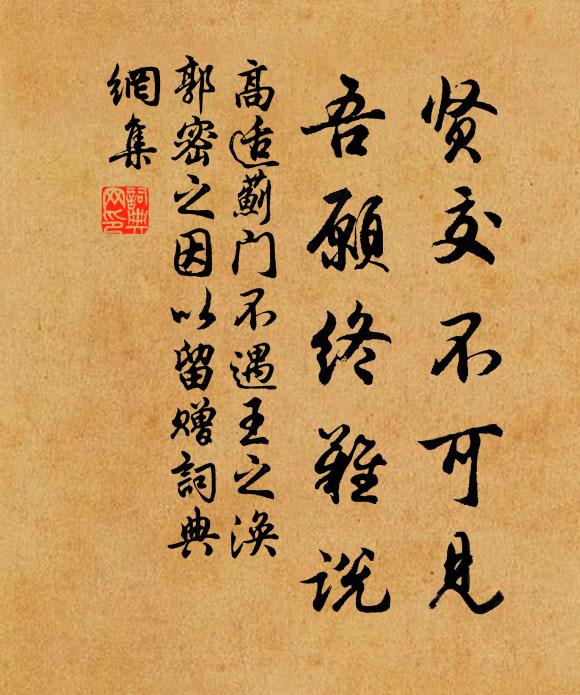 贤交不可见
吾愿终难说
高适蓟门不遇王之涣
郭密之因以留赠詞典
網集
詞典
网印